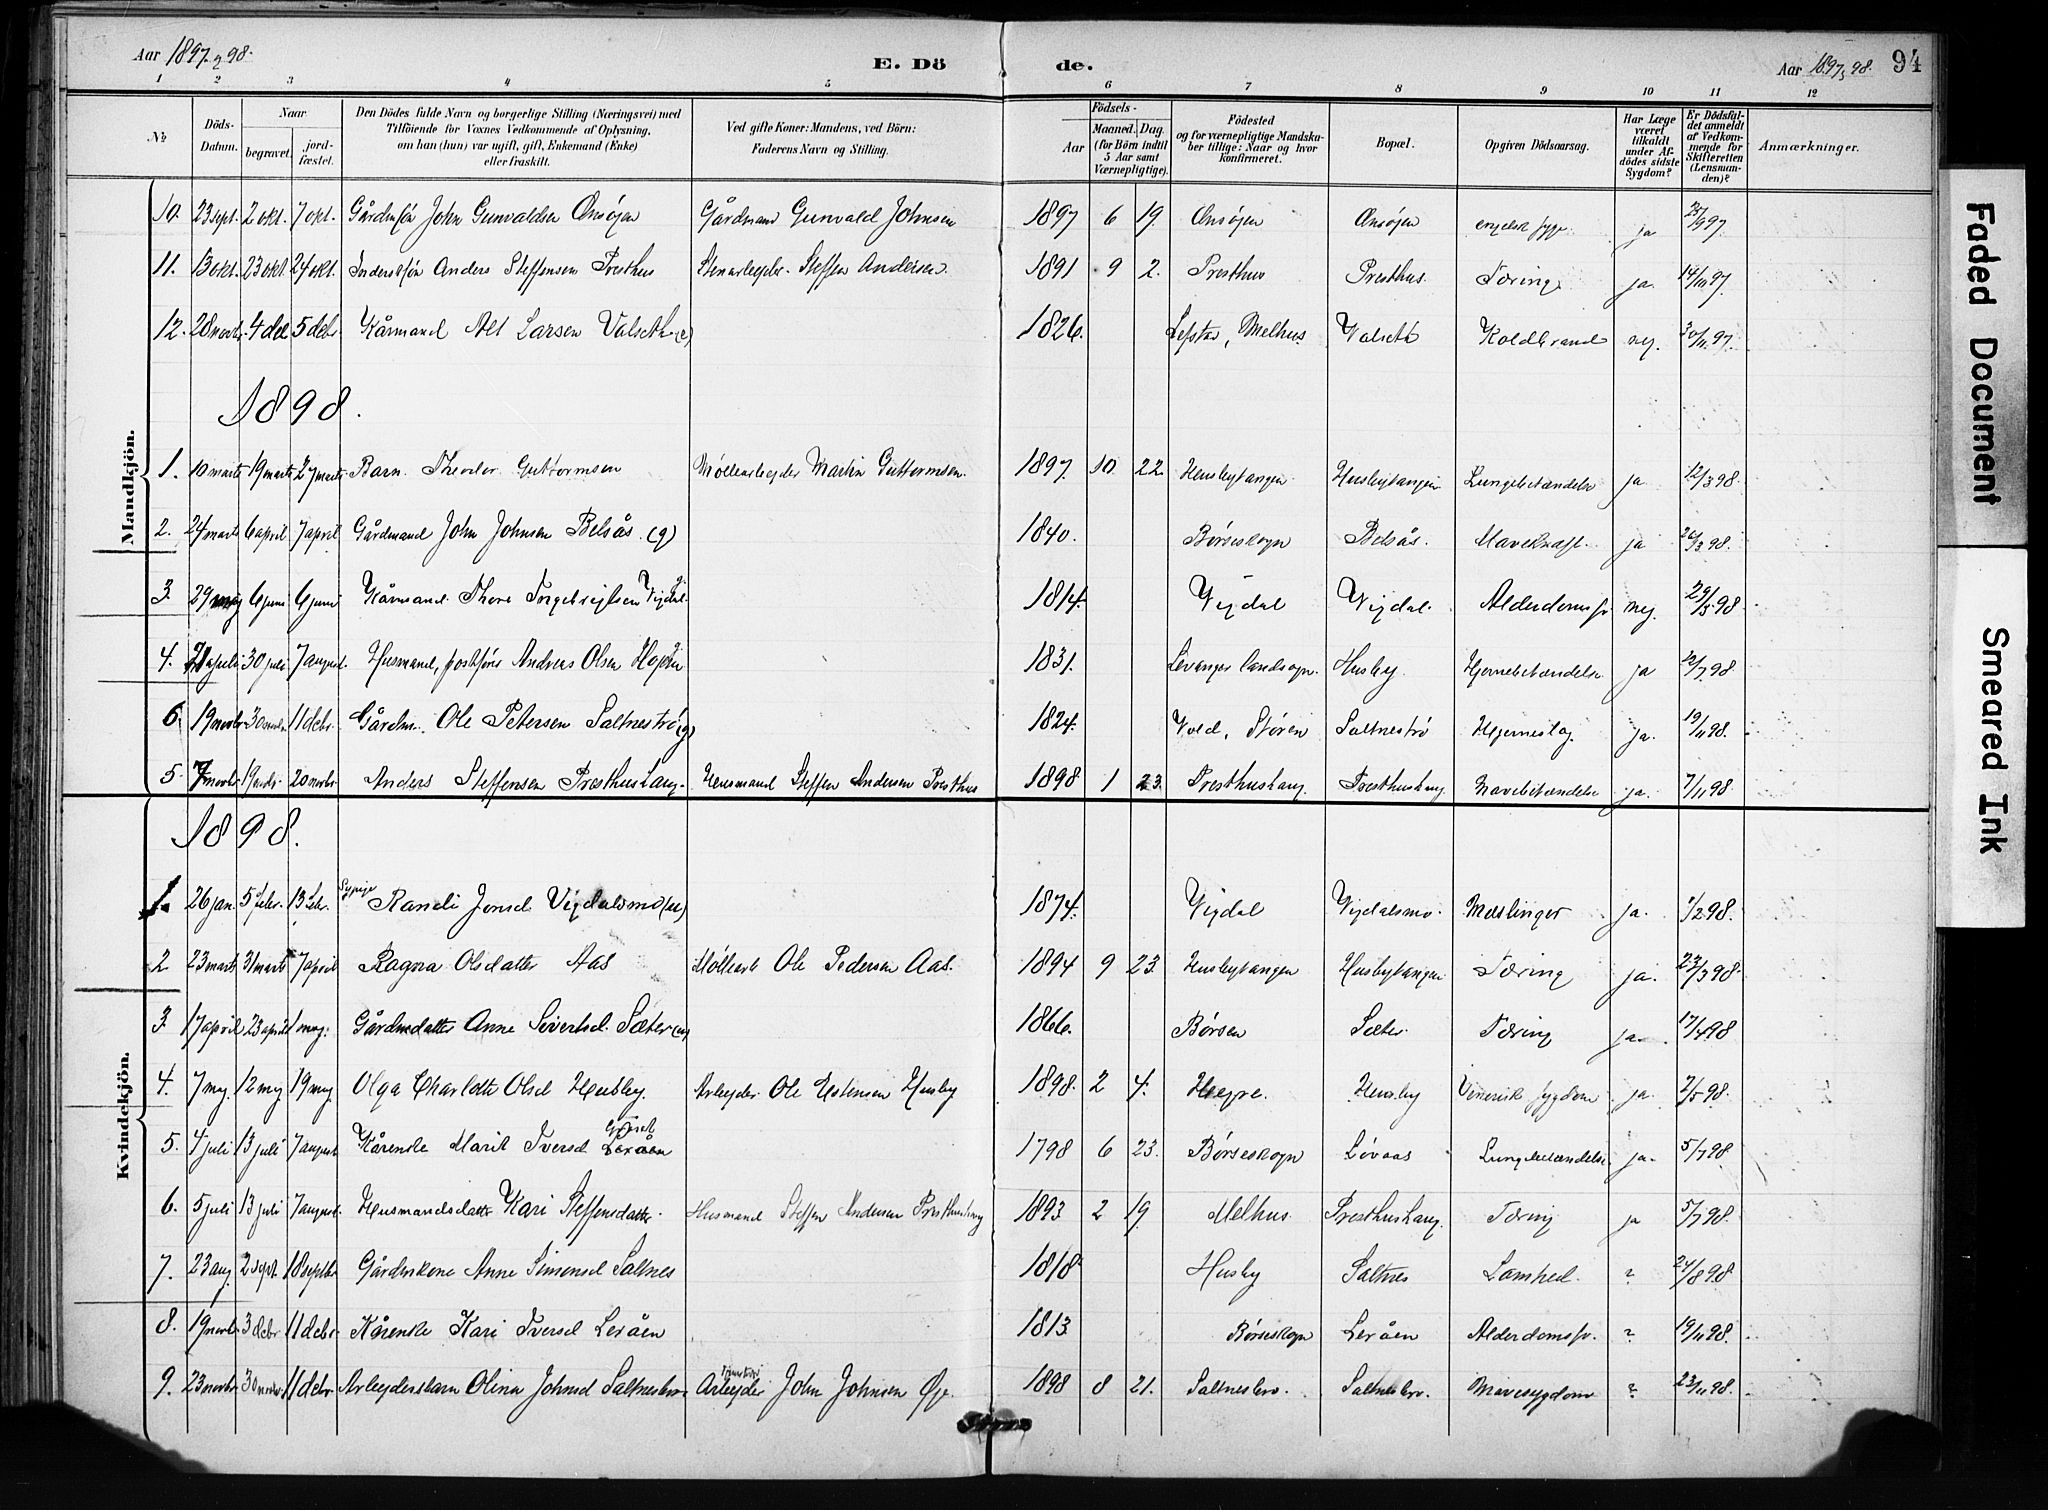 Aar 1897 & 98.
E. Döde.
Aar 1897 & 98. 94
1 2 3 4 5 6 7 8 9 10 11 12
№
Döds-Datum.
Naar
begravet.
jord-fæstet.
Den Dödes fulde Navn og borgerlige Stilling (Næringsvei) med
Tilföiende for Voxnes Vedkommende af Oplysning,
om han (hun) var ugift, gift, Enkemand (Enke)
eller fraskilt.
Ved gifte Koner: Mandens, ved Börn:
Faderens Navn og Stilling.
Födsels-
Aar
Maaned. Dag.
(for Börn indtil
5 Aar samt
Værnepligtige).
Födested
og for værnepligtige Mandsku-
ber tillige: Naar og hvor
konfirmeret.
Bopæl.
Opgiven Dödsaarsag.
Har Læge
været
tilkaldt
under Af-
dödes sidste
Sygdom?
Er Dödsfal-
det anmeldt
af Vedkom-
mende for
Skifteretten
(Lensman-
den)?
Anmærkninger.
Mandkjön.
10. 23 sept. 2 okt. 7 okt. Gårdmsøn John Gunvaldsen Onsøjen Gårdmand Gunvald Johnsen 1897 6 19. Onsøjen Onsøjen engelsk syge ja 25/9 97.
11. 13 okt. 23 okt. 24 okt. Inderstsøn Anders Steffensen Presthus Stenarbejder Steffen Andersen. 1891 9 2. Presthus Presthus. Tæring ja. 14/10 97.
12. 28 novbr. 4 dec 5 decbr. Kårmand Larsen Valseth (e) 1826. Melhus. Valseth Koldbrand nej. 30/11 97.
1898.
1. 10 marts 19 marts 27 marts Barn Theodor Guttormsen Møllearbejder Martin Guttormsen. 1897. 10. 22. Husbytangen Husbytangen Lungebetændelse ja 12/3 98.
2. 24 marts 6 april 7 april Gårdmand John Johnsen Belsås. (g) 1840. Børseskogn Belsås. ja 26/3 98.
3. 29 maj 6 juni 6 juni Kårmand Thore Ingebrigtsen Vigdal. 1814. Vigdal Vigdal. nej. 29/5 98.
4. 21 juli 30 juli 7 august. Husmand, Andreas Olsen 1831. Levanger landsogn. Husby. Hjernebetændelse ja 22/7 98.
6. 19 novbr. 30 novbr. 11 decbr. Gårdm. Ole Petersen Saltnestrø (g) 1824. Vold, Støren Saltnestrø Hjerneslag. ja. 19/11 98.
5. 7 novbr. 19 novbr. 20 novbr. Anders Steffensen Presthushaug. Husmand Steffen Andersen Presthus 1898 1 23. Presthushaug. Presthushaug Mavebetændelse ja. 7/11 98.
Kvindekjön.
1898.
1. 26 jan. 5 febr. 13 febr. Sypige Randi Jonsd Vigdalsmo (u) 1874. Vigdal Vigdalsmo. Mæslinger ja. 1/2 98.
2 23 marts 31 marts 7 april Ragna Olsdatter Aas Møllearb Ole Pedersen Aas. 1894 9 23. Husbytangen Husbytangen Tæring ja. 23/3 98.
3. 17 april 23 april 1 maj. Gårdmdatter Anne Sivertsd. Sæter (u) 1866. Børsen Sæter. Tæring ja. 17/4 98
4. 7 maj. 12 maj 19 maj. Olga Charlotte Olsd Husby. Arbejder Ole Estensen Husby 1898. 2 4. Hegre. Husby Venerisk sygdom ja. 7/5 98.
5. 4 juli 13 juli 7 august Kårenke Marit Iversd Leråen 1798 6 23. Børseskogn Løvaas Lungebetændelse ja. 5/7 98.
6. 5 juli 13 juli 7 august. Husmandsdatter Kari Steffensdatter. Husmand Steffen Andersen Presthushaug 1893 2 19 Melhus. Presthushaug. Tæring ja 5/7 98.
7. 23 aug. 2 sept. 18 septbr. Gårdmkone Anne Simonsd Saltnes 1818 Husby Saltnes Lamhed. ? 24/8 98.
8. 19 novbr. 3 decbr. 11 decbr. Kårenke Kari Iversd Leråen 1813 Børseskogn Leråen ? 19/11 98.
9. 23 novbr. 30 novbr. 11 decbr. Arbejdersbarn Olina Johnsd Saltnesbro Arbejder John Johnsen Øje. 1898 8 21. Saltnesbro. Saltnesbro. Mavesygdom ? 23/11 98.
Faded Document
Smeared Ink